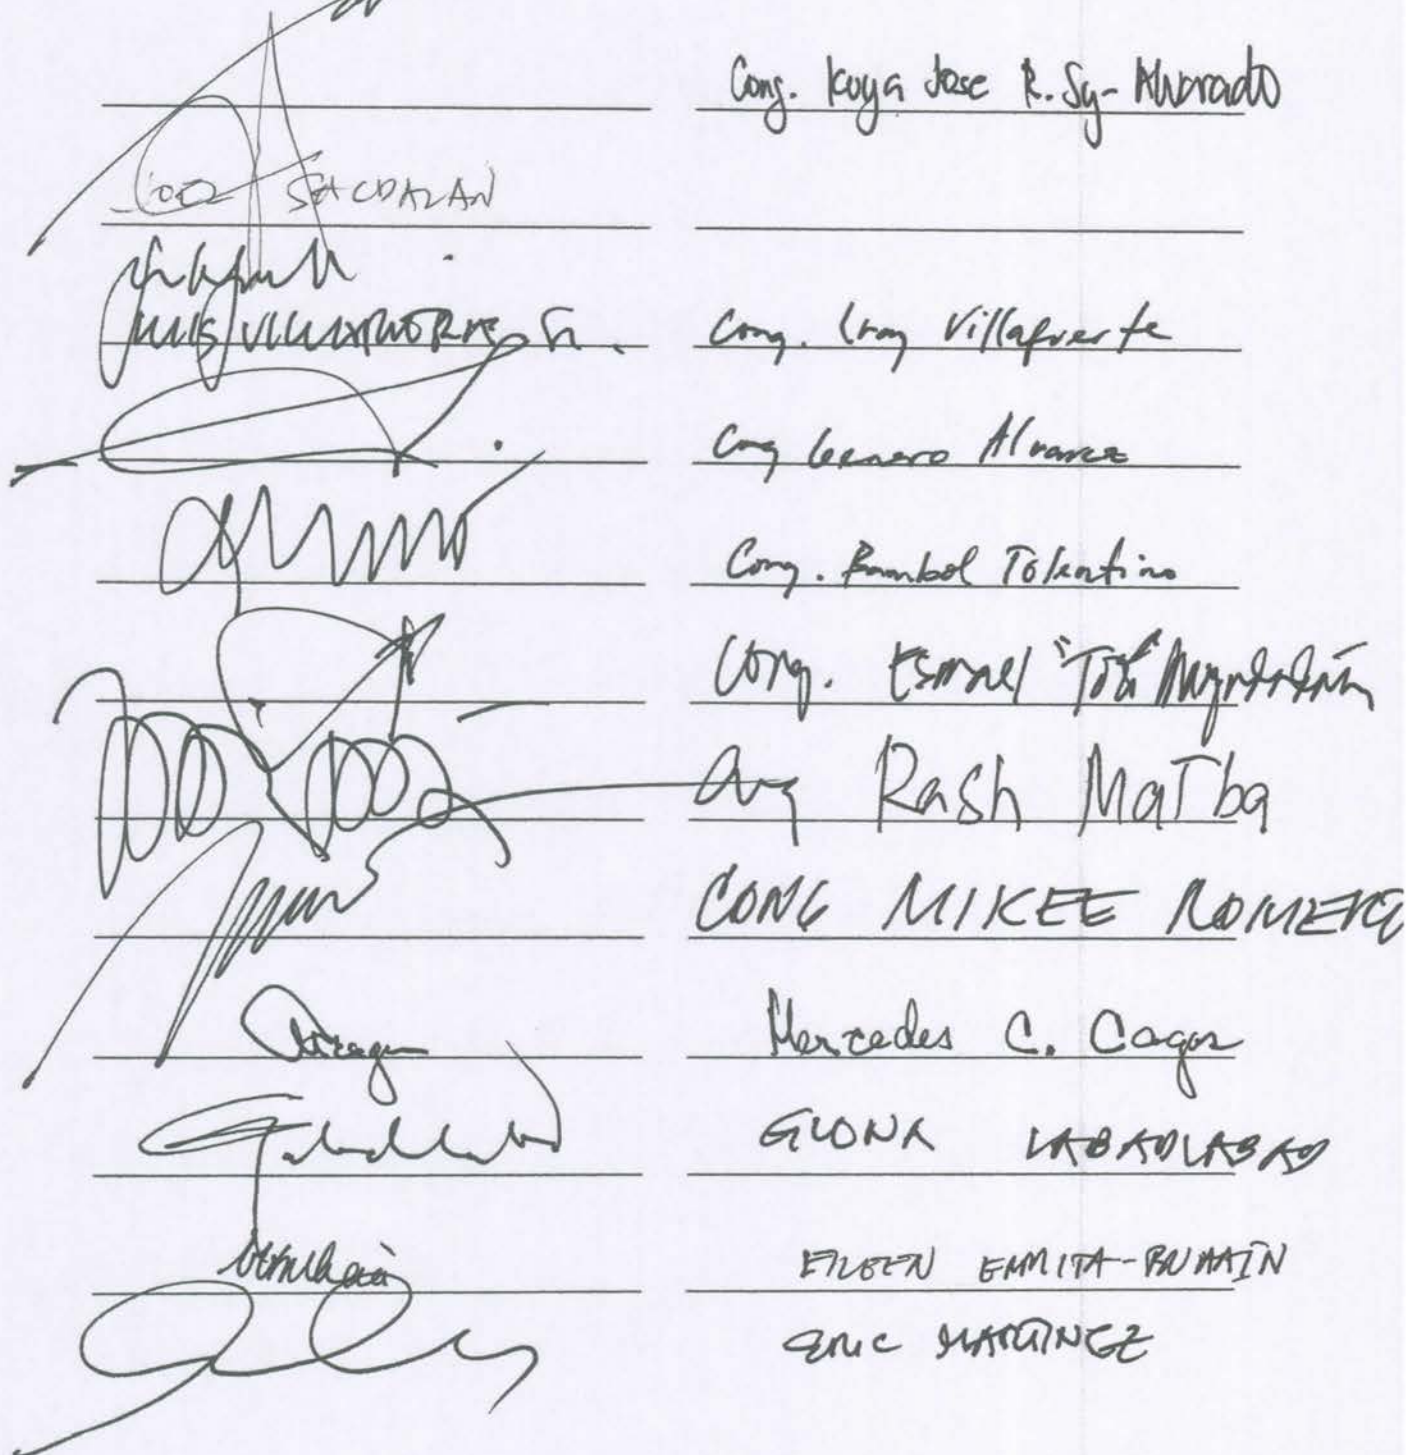 Cong. Kuya Jose R. Sy-Alvarado
SACDALAN
LUIS VILLAFUERTE Jr.
Cong. Lray Villafuerte
Cong Genaro Alvarez
Cong. Bambol Tolentino
Cong. Esmael "Toto"
Cong Rash Matba
CONG MIKEE ROMERO
Mercedes C. Cagas
GLONA LABADLABAD
EILEEN ERMITA-BUHAIN
ERIC MARTINEZ